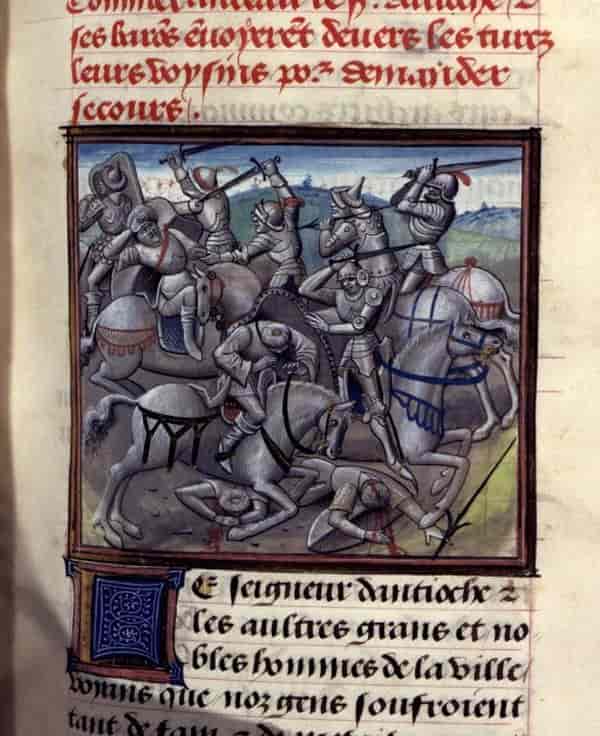 Comment
ses barōs ēvoyerēt devers les turcz
leurs voysins po² demander
secours.
Le seigneur dantioche &
les aultres grans et no
bles hommes de la ville
que noz gens souffroient
tant de fain &